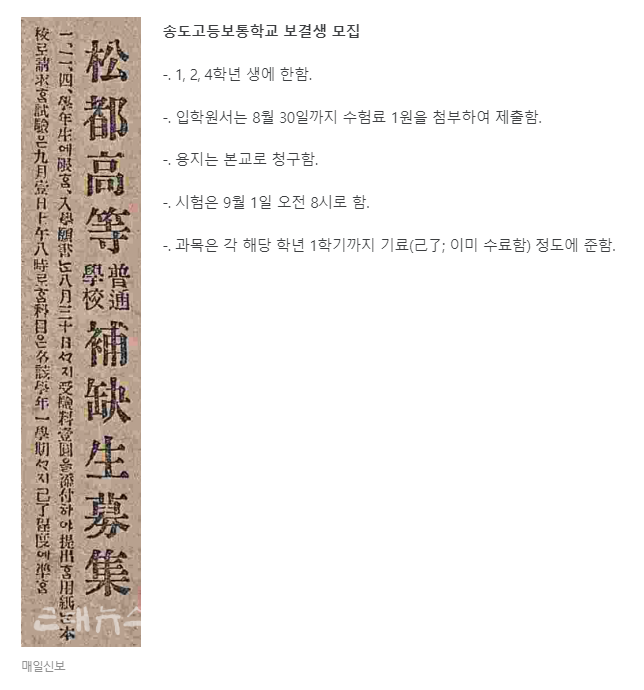 松都高等普通學校補缺生募集
一、二、四、學年生에限홈、入學願書는八月三十日ᄭᆞ지受驗料壹圓을添付하야提出홈用紙는本
校로請求홈試驗은九月壹日上午八時로홈科目은各該學年一學期ᄭᆞ지己了程度에準홈
근대뉴스
매일신보
송도고등보통학교 보결생 모집
-. 1, 2, 4학년 생에 한함.
-. 입학원서는 8월 30일까지 수험료 1원을 첨부하여 제출함.
-. 용지는 본교로 청구함.
-. 시험은 9월 1일 오전 8시로 함.
-. 과목은 각 해당 학년 1학기까지 기료(己了; 이미 수료함) 정도에 준함.